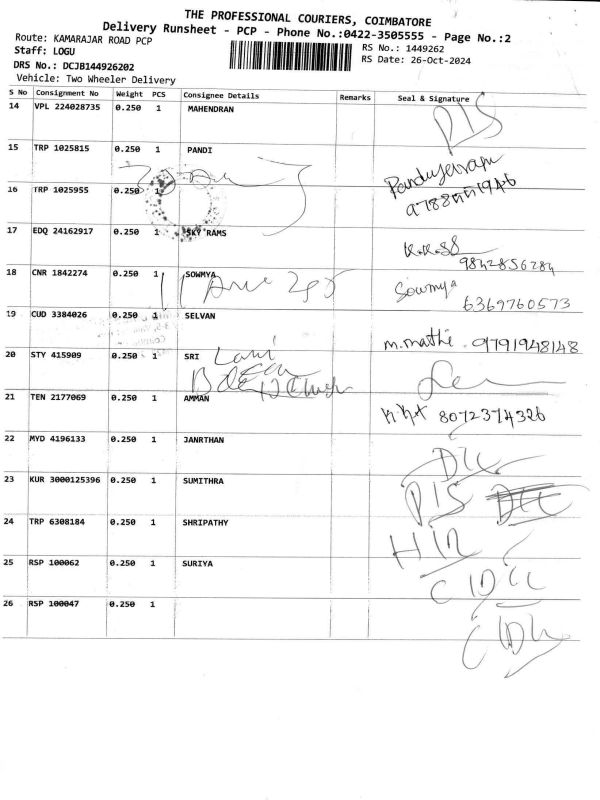 THE PROFESSIONAL COURIERS, COIMBATORE
Delivery Runsheet - PCP - Phone No.:0422-3505555 - Page No.:2
Route: KAMARAJAR ROAD PCP
RS No.: 1449262
Staff: LOGU
RS Date: 26-Oct-2024
DRS No.: DCJB144926202
Vehicle: Two Wheeler Delivery
S No Consignment No Weight PCS Consignee Details Remarks Seal & Signature
14 VPL 224028735 0.250 1 MAHENDRAN
15 TRP 1025815 0.250 1 PANDI
16 TRP 1025955 0.250 1
17 EDQ 24162917 0.250 1 SKY RAMS
9842856284
18 CNR 1842274 0.250 1 SOWMYA Sowmya
6369760573
19 CUD 3384026 0.250 1 SELVAN m.mathi. 9791948148
20 STY 415909 0.250 1 SRI
21 TEN 2177069 0.250 1 AMMAN 8072374326
22 MYD 4196133 0.250 1 JANRTHAN
23 KUR 3000125396 0.250 1 SUMITHRA
24 TRP 6308184 0.250 1 SHRIPATHY
25 RSP 100062 0.250 1 SURIYA
26 RSP 100047 0.250 1